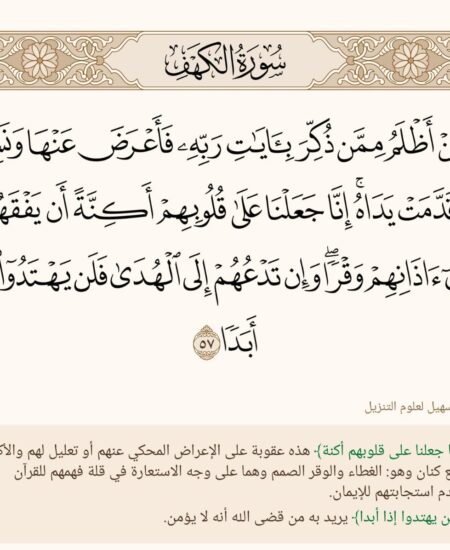 سُورَةُ الكَهْفِ
أَظْلَمُ مِمَّن ذُكِّرَ بِـَٔايَٰتِ رَبِّهِۦ فَأَعْرَضَ عَنْهَا
قَدَّمَتْ يَدَاهُۚ إِنَّا جَعَلْنَا عَلَىٰ قُلُوبِهِمْ أَكِنَّةً أَن
ءَاذَانِهِمْ وَقْرًاۖ وَإِن تَدْعُهُمْ إِلَى ٱلْهُدَىٰ فَلَن يَهْتَدُوٓا۟
أَبَدًا ٥٧
لعلوم التنزيل
جعلنا على قلوبهم أكنة﴾ هذه عقوبة على الإعراض المحكي عنهم أو تعليل لهم
كنان وهو: الغطاء والوقر الصمم وهما على وجه الاستعارة في قلة فهمهم للقرآن
استجابتهم للإيمان.
يهتدوا إذا أبدا﴾ يريد به من قضى الله أنه لا يؤمن.